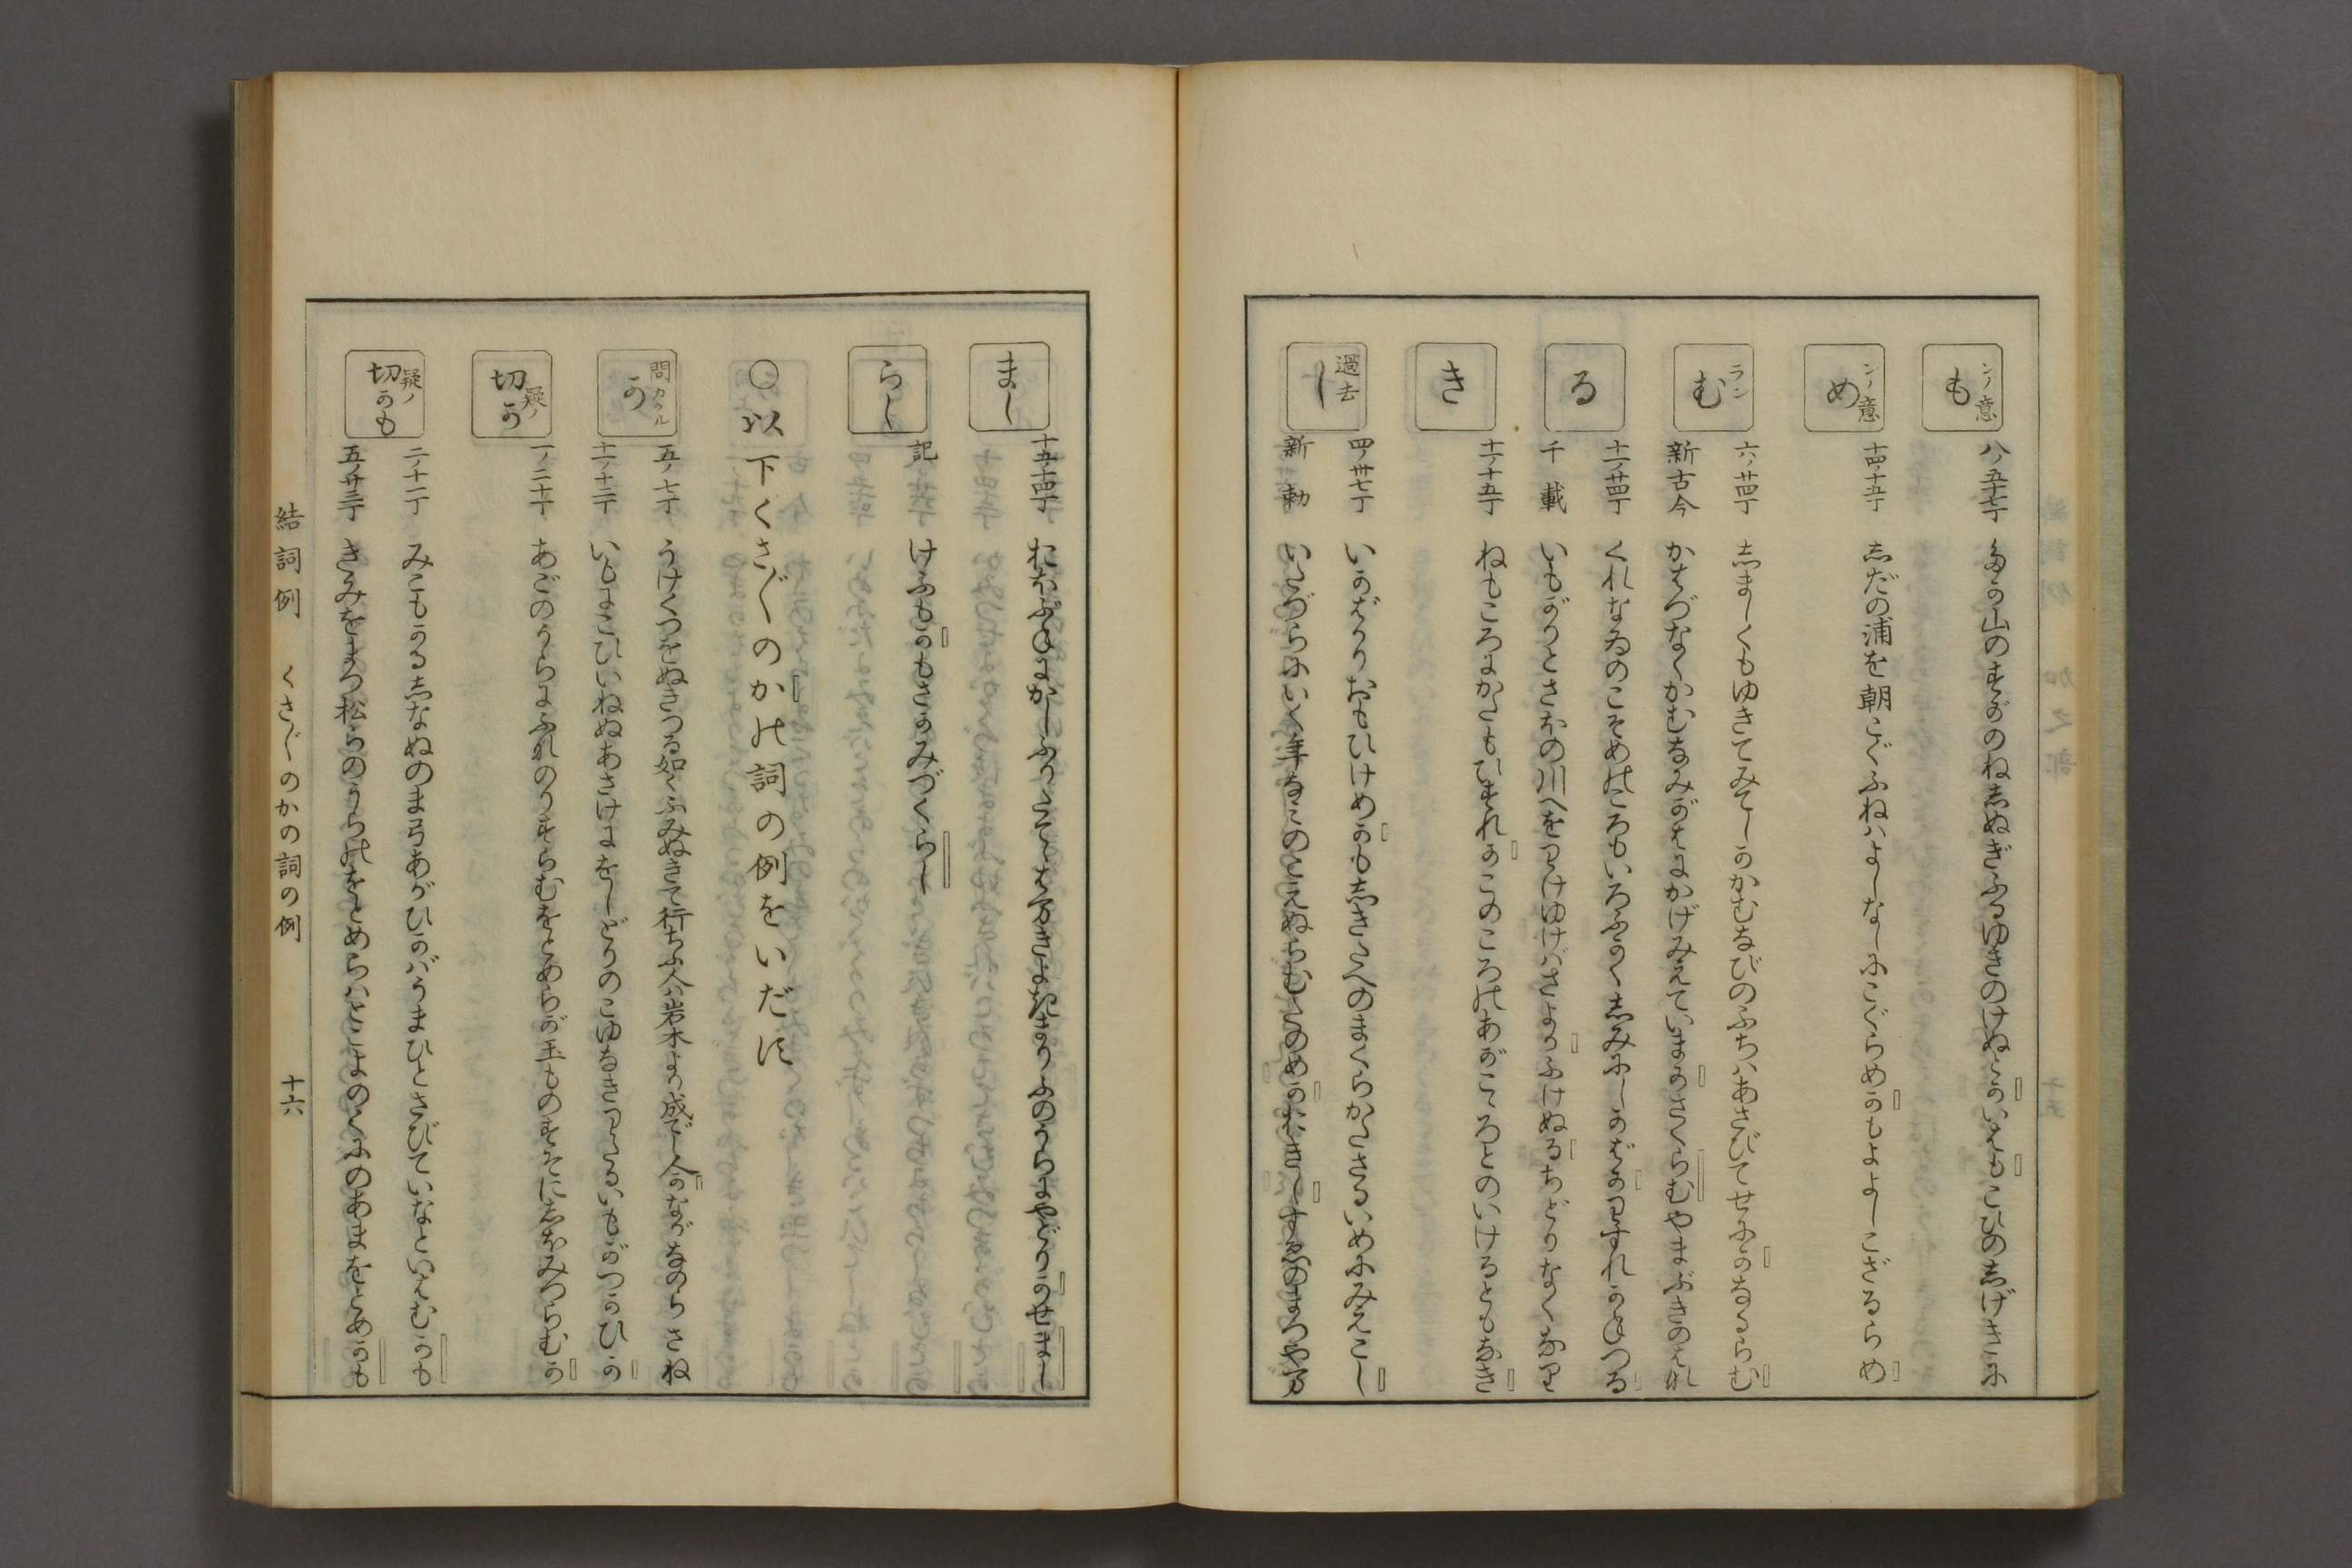 も ンノ意
八ノ五十七丁 たか山のすがのねしぬぎふるゆきのけぬとかいはもこひのしげきに
め ンノ意
十四ノ十五丁 志だの浦を朝こぐふねハよしなしにこぐらめかもよよしこざるらめ
む ラン
六ノ廿四丁 志ましくもゆきてみてしかかむなびのふちハあさびてせにかなるらむ
新古今 かはづなくかむなみがはにかげみえていまかさくらむやまぶきのはな
る
十一ノ廿四丁 くれなゐのこぞめのころもいろふかく志みにしかばかわすれかねつる
千載 いもがりとさほの川べをわけゆけばさよかふけぬるちどりなくなり
き
十一ノ十五丁 ねもころにかたもひすれかこのころのあがこころとのいけるともなき
し 過去
四ノ卅七丁 いかばかりおもひけめかも志きたへのまくらかたさるいめにみえこし
新勅 いたづらにいく年なみのこえぬらむたのめかおきしすゑのまつやま
まし
十五ノ十四丁 おほぶねにかしふりたててはまぎよきまりふのうらにやどりかせまし
らし
記 けふもかもさかみづくらし
○以下くさ〴〵のかの詞の例をいだす
か 問カクル
五ノ七丁 うけぐつをぬきつる如くふみぬきて行ちふ人ハ岩木より成でし人かながなのらさね
十一ノ十二丁 いもにこひいねぬあさけにをしどりのこゆなきわたるいもがつかひか
切か 疑ノ
一ノ二十丁 あごのうらにふなのりすらむをとめらが玉ものすそに志ほみつらむか
切かも 疑ノ
二ノ十一丁 みこもかる志なぬのま弓あがひかばうまひとさびていなといはむかも
五ノ廿三丁 きみをまつ松らのうらのをとめらハとこよのくにのあまをとめかも
結詞例 くさ〴〵のかの詞の例 十六